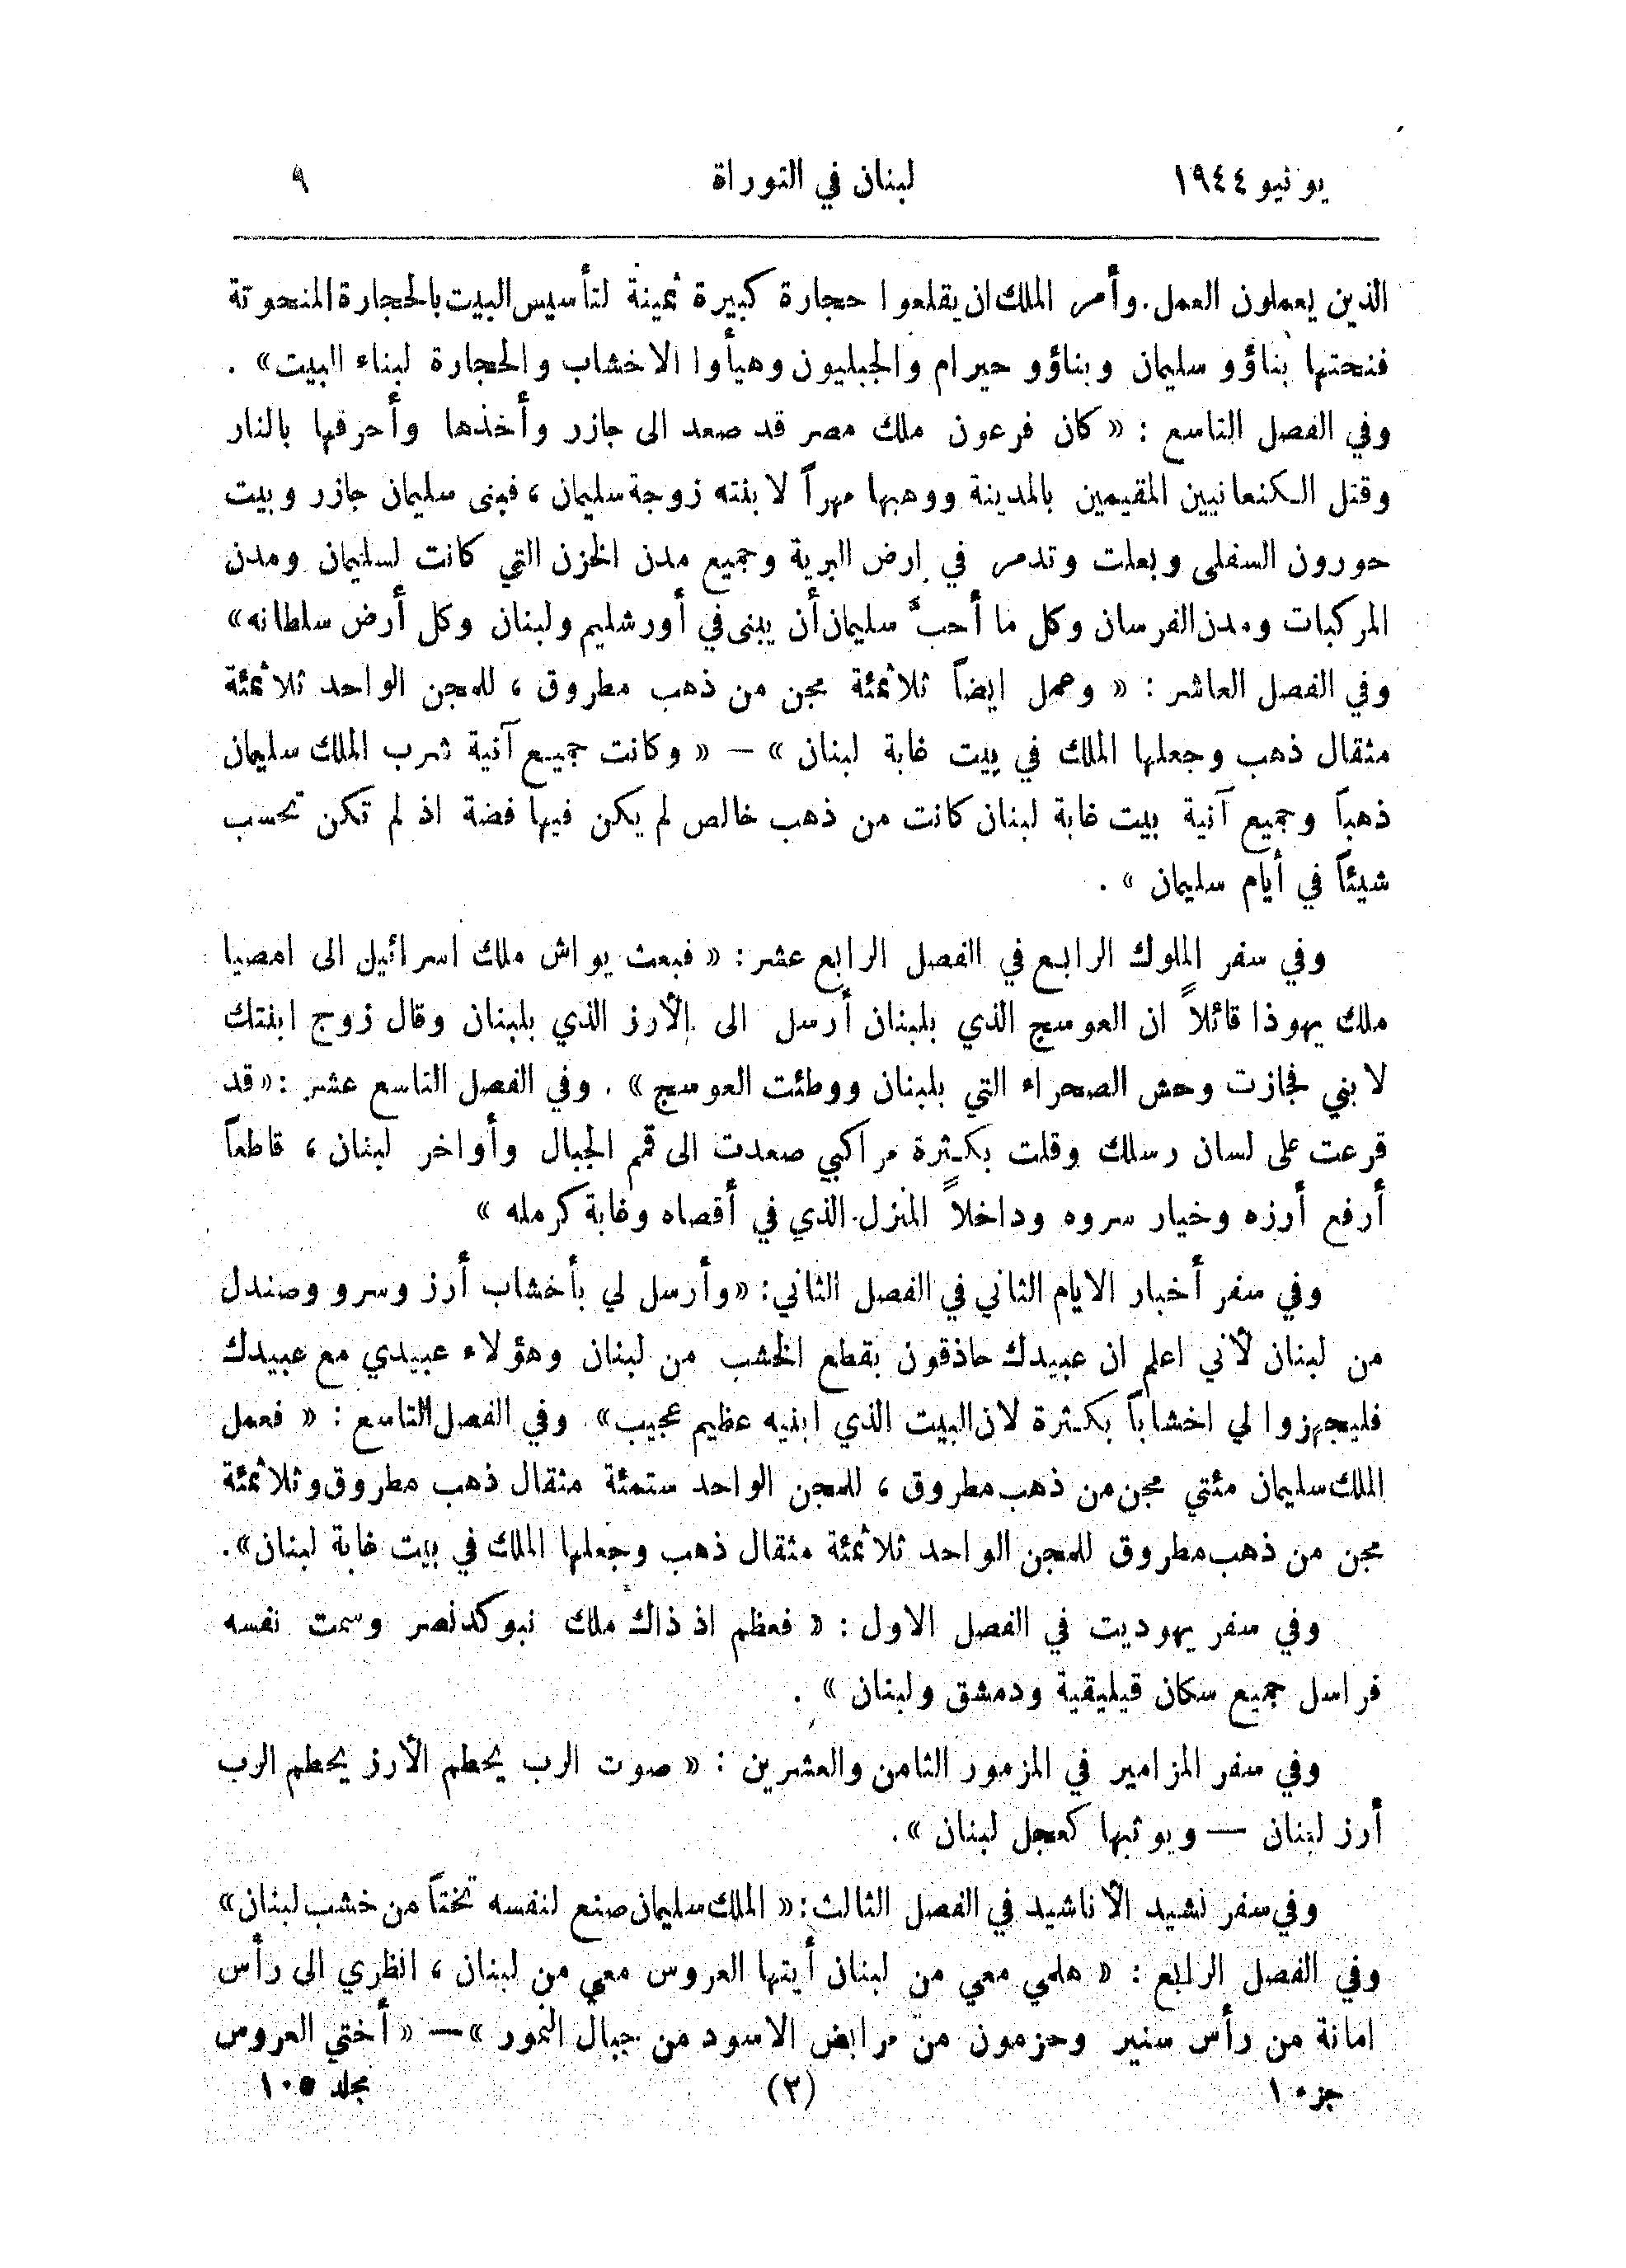 يونيو ١٩٤٤ لبنان في التوراة ٩
الذين يعملون العمل. وأمر الملك ان يقلعوا حجارة كبيرة ثمينة لتأسيس البيت بالحجارة المنحوتة
فنحتها بناؤو سليمان وبناؤو حيرام والجبليون وهيأوا الاخشاب والحجارة لبناء البيت» .
وفي الفصل التاسع : « كان فرعون ملك مصر قد صعد الى جازر وأخذها وأحرقها بالنار
وقتل الكنعانيين المقيمين بالمدينة ووهبها مهراً لابنته زوجة سليمان ، فبنى سليمان جازر وبيت
حورون السفلى وبعلت وتدمر في ارض البرية وجميع مدن الخزن التي كانت لسليمان ومدن
المركبات ومدن الفرسان وكل ما أحبَّ سليمان أن يبنى في أورشليم ولبنان وكل أرض سلطانه»
وفي الفصل العاشر : « وعمل ايضاً ثلاثمئة مجن من ذهب مطروق ، للمجن الواحد ثلاثمئة
مثقال ذهب وجعلها الملك في بيت غابة لبنان » — « وكانت جميع آنية شرب الملك سليمان
ذهباً وجميع آنية بيت غابة لبنان كانت من ذهب خالص لم يكن فيها فضة اذ لم تكن تحسب
شيئاً في أيام سليمان » .
وفي سفر الملوك الرابع في الفصل الرابع عشر : « فبعث يواش ملك اسرائيل الى امصيا
ملك يهوذا قائلاً ان العوسج الذي بلبنان أرسل الى الأرز الذي بلبنان وقال زوج ابنتك
لابني فجازت وحش الصحراء التي بلبنان ووطئت العوسج » . وفي الفصل التاسع عشر : «قد
قرعت على لسان رسلك وقلت بكثرة مراكبي صعدت الى قمم الجبال وأواخر لبنان ، قاطعاً
أرفع أرزه وخيار سروه وداخلاً المنزل الذي في أقصاه وغابة كرمله »
وفي سفر أخبار الايام الثاني في الفصل الثاني : «وأرسل لي بأخشاب أرز وسرو وصندل
من لبنان لأني اعلم ان عبيدك حاذقون بقطع الخشب من لبنان وهؤلاء عبيدي مع عبيدك
فليجهزوا لي اخشاباً بكثرة لان البيت الذي ابنيه عظيم عجيب» . وفي الفصل التاسع : « فعمل
الملك سليمان مئتي مجن من ذهب مطروق ، للمجن الواحد ستمئة مثقال ذهب مطروق وثلاثمئة
مجن من ذهب مطروق للمجن الواحد ثلاثمئة مثقال ذهب وجعلها الملك في بيت غابة لبنان».
وفي سفر يهوديت في الفصل الاول : « فعظم اذ ذاك ملك نبوكدنصر وسمت نفسه
فراسل جميع سكان قيليقية ودمشق ولبنان » .
وفي سفر المزامير في المزمور الثامن والعشرين : « صوت الرب يحطم الأرز يحطم الرب
أرز لبنان — ويوثبها كعجل لبنان » .
وفي سفر نشيد الأناشيد في الفصل الثالث : « الملك سليمان صنع لنفسه تختاً من خشب لبنان»
وفي الفصل الرابع : « هلمي معي من لبنان أيتها العروس معي من لبنان ، انظري الى رأس
امانة من رأس سنير وحزمون من مرابض الاسود من جبال النمور » — « أختي العروس
جزء ١ (٢) مجلد ١٠٥